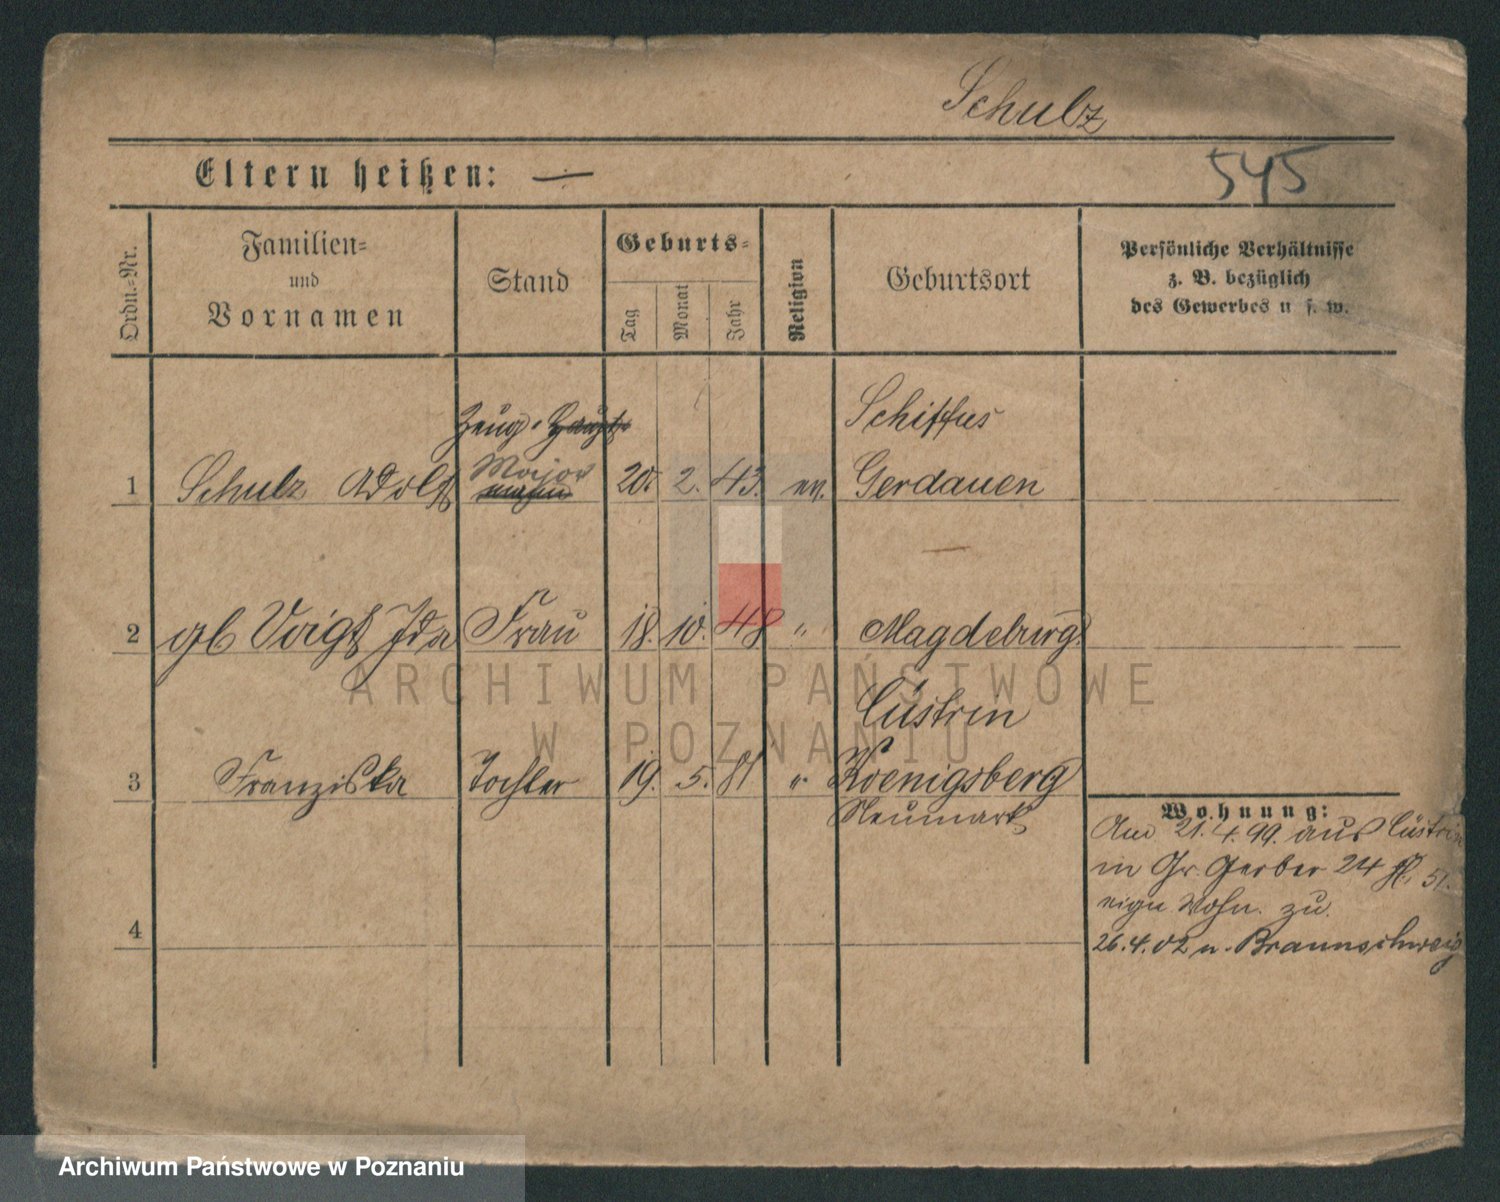 Schulz
Eltern heißen: —
545
Ordn.-Nr.
Familien-
und
Vornamen
Stand
Geburts-
Tag
Monat
Jahr
Religion
Geburtsort
Persönliche Verhältnisse
z. B. bezüglich
des Gewerbes u s. w.
Zeug-Haupt-
Schiffus
Major
1 Schulz Adolf mann 20. 2. 43. ev. Gerdauen
2 gb Voigt Ida Frau 18. 10. 48 " Magdeburg
Cüstrin
3 Franziska Tochter 19. 5. 81 " Koenigsberg
Neumark
Wohnung:
21.4.99. aus Cüstrin
in Gr. Gerber 24 51.
eign. Wohn. zu.
4
26.4.02 n. Braunschweig
ARCHIWUM PAŃSTWOWE
W POZNANIU
Archiwum Państwowe w Poznaniu